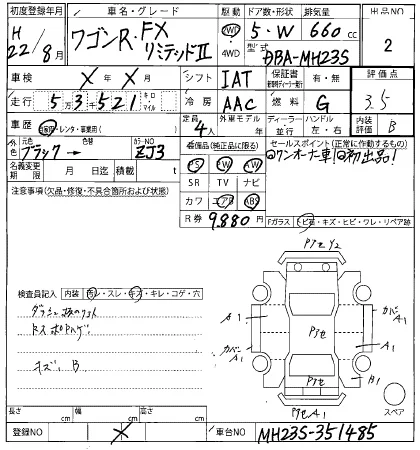 初度登録年月 車名・グレード 駆動 ドア数・形状 排気量 出品NO
H22/8月 ワゴンR・FX リミテッドⅡ 2WD 4WD 5・W 660cc 2
型式 DBA-MH23S
車検 X年X月 シフト IAT 保証書 有・無 評価点
走行 53521 キロ マイル 冷房 AAC 燃料 G 3.5
車歴 自家用・レンタ・事業用( ) 定員 4人 外車モデル 年 ディーラー 並行 ハンドル 左・右 内装評価 B
外色 元色 ブラック→ 色替 カラーNO ZJ3 装備品(純正品に限る) セールスポイント(正常に作動するもの)
名義変更期限 月 日迄 積載 t PS PW AW ◎ワンオーナー車!◎初出品!
注意事項(欠品・修復・不具合箇所および状態) SR TV ナビ
カワ エアB ABS
R券 9,880円 Fガラス トビ石・キズ・ヒビ・ワレ・リペア跡
アセY2
検査員記入 内装 汚レ・スレ・キズ・キレ・コゲ・穴
A1 カバーA1
アセ
カバーA1 A1
キズ B
アセ B1
スペア
アセA1
長さ cm 幅 cm 高さ cm
登録NO X 車台NO MH23S-351485